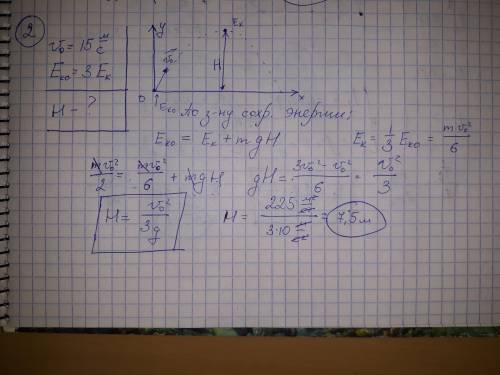 2
v₀ = 15 м/с
Eко = 3 Eк
H - ?
y
v₀
Eк
H
0
Eко
x
По з-ну сохр. энергии:
Eко = Eк + mgH
Eк = 1/3 Eко = mv₀²/6
mv₀²/2 = mv₀²/6 + mgH
gH = (3v₀² - v₀²)/6 = v₀²/3
H = v₀²/3g
H = (225 м²/с²)/(3·10 м/с²) = 7,5 м